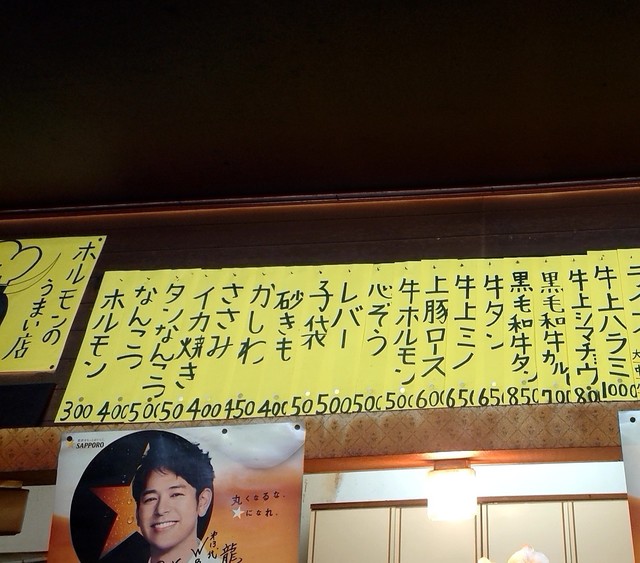 牛上ハラミ
1000
牛上シマチョウ
80
黒毛和牛カル
700
黒毛和牛タン
850
牛タン
650
牛上ミノ
650
上豚ロース
600
牛ホルモン
500
心ぞう
500
レバー
500
子袋
50
砂きも
400
かしわ
450
ささみ
400
イカ焼き
50
タンなんこつ
500
なんこつ
400
ホルモン
300
ホルモンの
うまい店
SAPPORO
丸くなるな、
★になれ。
龍